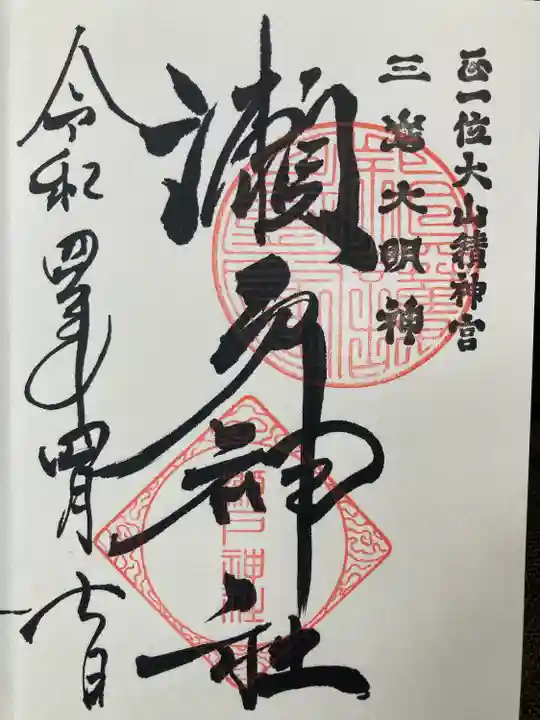 正一位大山積神宮
三嶌大明神
瀬戸神社
令和四年四月七日